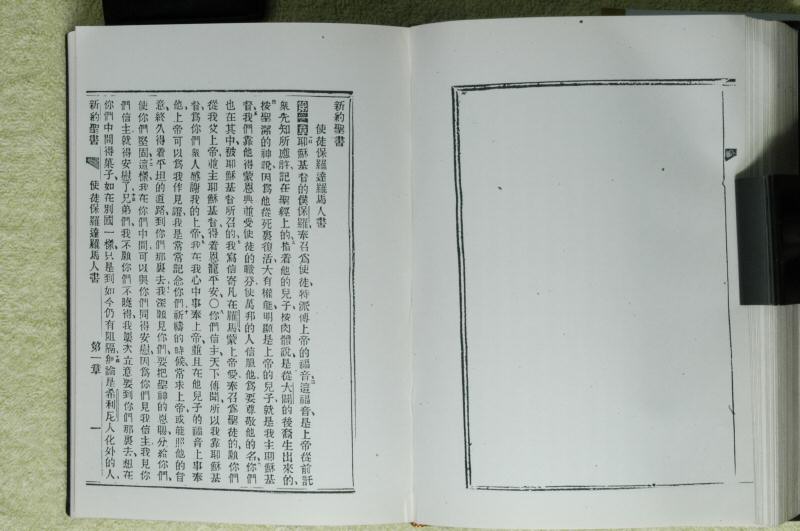 新約聖書
使徒保羅達羅馬人書
第一章耶穌基督的僕保羅奉召爲使徒特派傳上帝的福音這福音是上帝從前託
衆先知所應許記在聖經上的指着他的兒子按肉體說是從大闢的後裔生出來的、
按聖潔的神說因爲他從死裏復活大有權能明顯是上帝的兒子就是我主耶穌基
督、我們靠他得蒙恩典並受使徒的職分使萬邦的人信服他爲要尊敬他的名、你們
也在其中被耶穌基督所召的、我寫信寄凡在羅馬蒙上帝愛奉召爲聖徒的願你們
從我父上帝並主耶穌基督得着恩寵平安○你們信主天下傳聞所以我靠耶穌基
督爲你們衆人感謝我的上帝、我在我心中事奉上帝並且在他兒子的福音上事奉
他、上帝可以爲我作見證我是常常記念你們、祈禱的時候、常求上帝或能照他的旨
意、終久得着平坦的道路到你們那裏去、我深願見你們要把聖神的恩賜分給你們、
使你們堅固、這樣我在你們中間可以與你們同得安慰因爲你們見我信主我見你
們信主就得安慰了、兄弟們我不願你們不曉得、我屢次立意要到你們那裏去想在
你們中間得菓子、如在別國一樣、只是到如今仍有阻隔、無論是希利尼人化外的人、
新約聖書　使徒保羅達羅馬人書　第一章　一